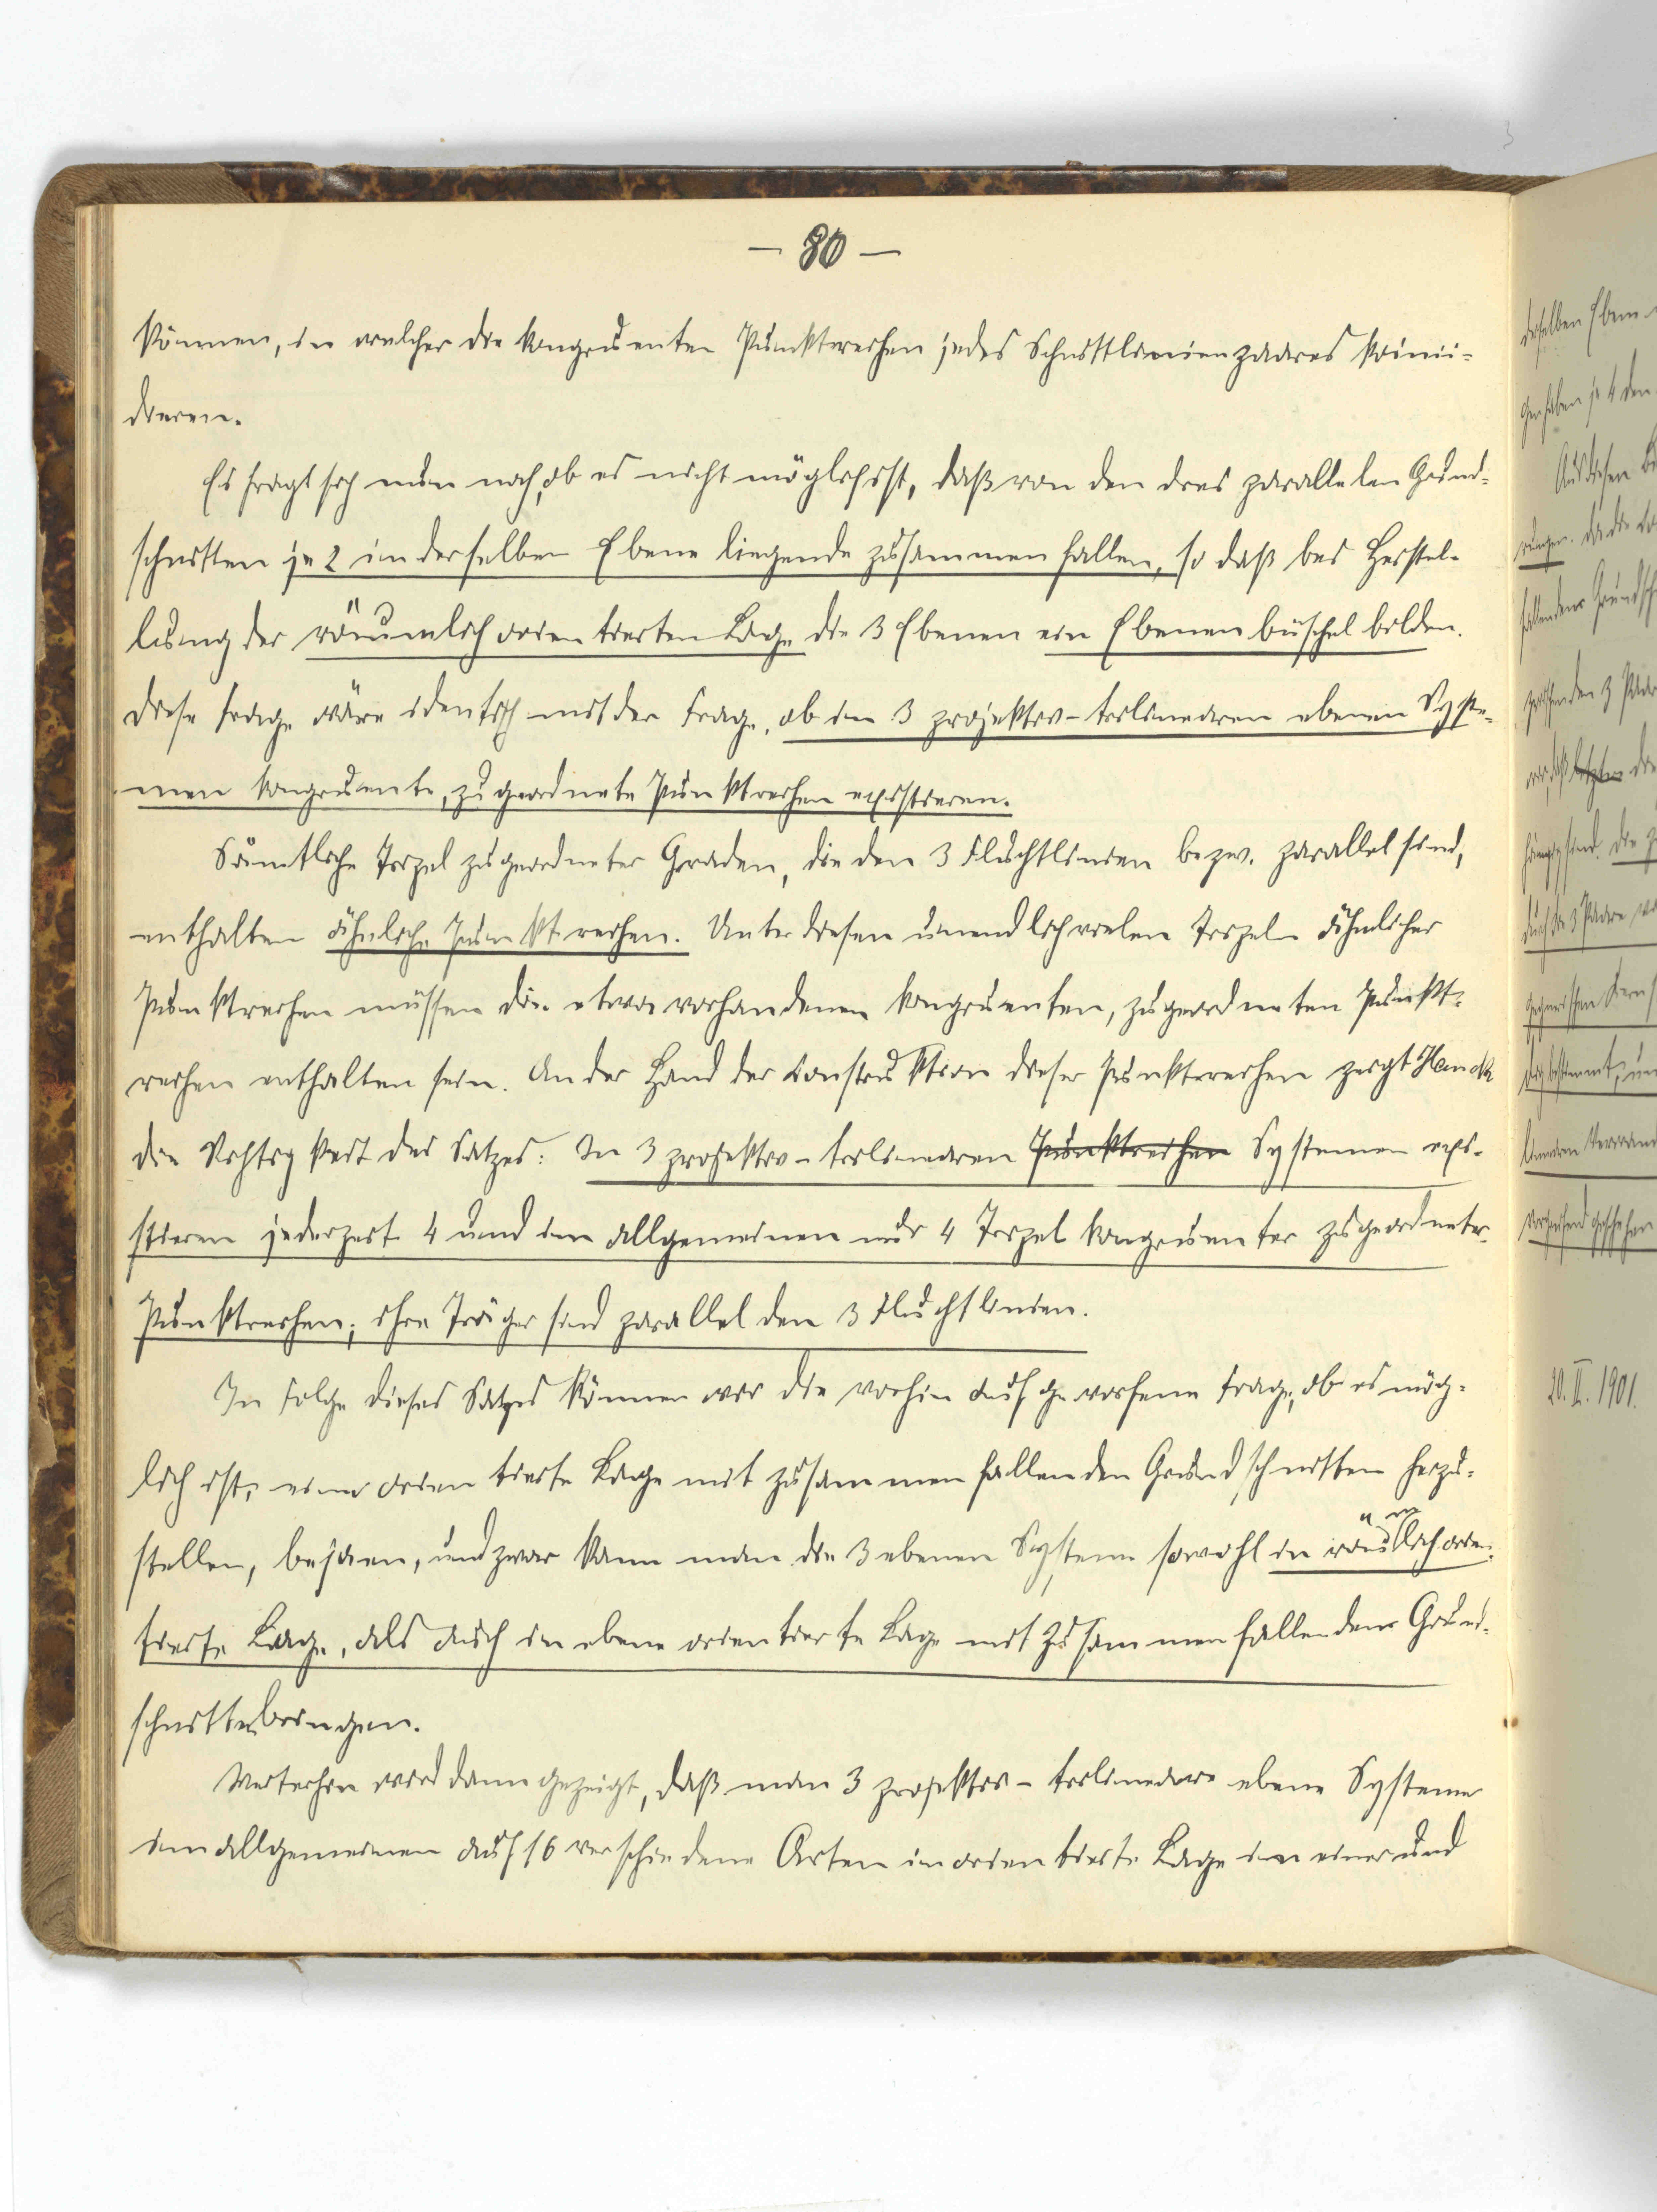 - 80 -
können, in welcher die kongruenten Punktreihen jedes Schnittlinienpaares koinzi-
dieren.
Es fragt sich nun noch, ob es nicht möglich ist, daß von den drei parallelen Grund-
schnitten je 2 in derselben Ebene liegende zusammenfallen, so daß bei Herstel-
lung der räumlich orientierten Lage die 3 Ebenen ein Ebenenbüschel bilden.
Diese Frage wäre identisch mit der Frage, ob in 3 projektiv-trilinearen ebenen Syste-
men kongruente, zugeordnete Punktreihen existieren.
Sämtliche Tripel zugeordneter Graden, die den 3 Fluchtlinien bezw. parallel sind,
enthalten ähnliche Punktreihen. Unter diesen unendlich vielen Tripeln ähnlicher
Punktreihen müssen die etwa vorhandenen kongruenten, zugeordneten Punkt-
reihen enthalten sein. An der Hand der Konstruktion dieser Punktreihen zeigt Hauck
die Richtigkeit des Satzes: In 3 projektiv-trilinearen Punktreihen Systemen exi-
stieren jederzeit 4 und im allgemeinen nur 4 Tripel kongruenter zugeordneter
Punktreihen; ihre Träger sind parallel den 3 Fluchtlinien.
In Folge dieses Satzes können wir die vorhin aufgeworfene Frage, ob es mög-
lich ist, eine orientierte Lage mit zusammenfallenden Grundschnitten herzu-
stellen, bejaen, und zwar kann man die 3 ebenen Systeme sowohl in räumlich orien-
tierte Lage, als auch in eben orientierte Lage mit zusammenfallendem Grund-
schnitte bringen.
Weiterhin wird dann gezeigt, daß man 3 projektiv-trilineare ebene Systeme
im allgemeinen auf 16 verschiedene Arten in orientierte Lage in einer und
derselben Ebene
je 4 den
Aus diesen
rungen. da die
fallendem Grundsch
zwischen den 3 Paar
daß letztere die
sind. Die
durch die 3 Paare
bestimmt, un
linearen Verwand
20. II. 1901.